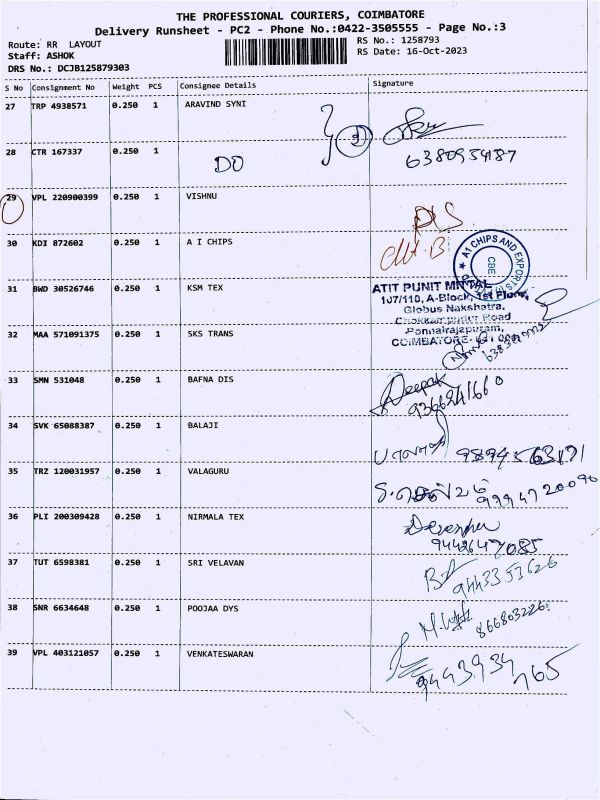 THE PROFESSIONAL COURIERS, COIMBATORE
Delivery Runsheet - PC2 - Phone No.:0422-3505555 - Page No.:3
Route: RR LAYOUT
RS No.: 1258793
Staff: ASHOK
RS Date: 16-Oct-2023
DRS No.: DCJB125879303
S No Consignment No Weight PCS Consignee Details Signature
27 TRP 4938571 0.250 1 ARAVIND SYNI
28 CTR 167337 0.250 1 DO
6380954187
29 VPL 220900399 0.250 1 VISHNU
30 KDI 872602 0.250 1 A I CHIPS
A1 CHIPS AND EXPORTS
CBE
31 BWD 30526746 0.250 1 KSM TEX
ATIT PUNIT MITTAL
107/110, A-Block, 1st Floor,
Globus Nakshatra,
Road
Ponnairajapuram,
32 MAA 571091375 0.250 1 SKS TRANS
COIMBATORE-
33 SMN 531048 0.250 1 BAFNA DIS
Deepak
9366241660
34 SVK 65088387 0.250 1 BALAJI
9894563191
35 TRZ 120031957 0.250 1 VALAGURU
9994720090
36 PLI 200309428 0.250 1 NIRMALA TEX
Devender
9442647085
37 TUT 6598381 0.250 1 SRI VELAVAN
9443353626
38 SNR 6634648 0.250 1 POOJAA DYS
39 VPL 403121057 0.250 1 VENKATESWARAN
9443934765